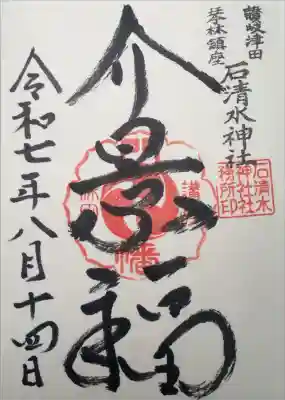 讃岐津田
琴林鎮座
石清水神社
介景福
令和七年八月十四日
石清水
神社社
務所印
讃
八幡